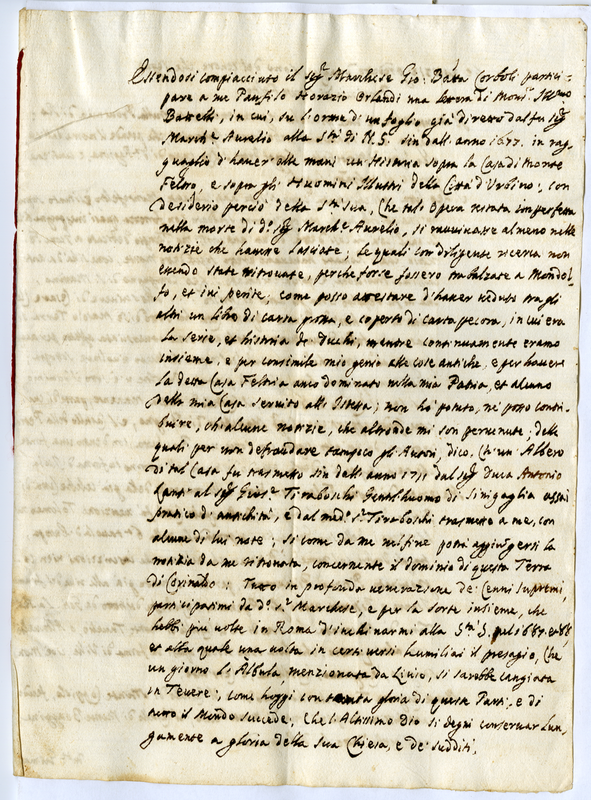 Essendosi compiacciuto il Sig.r Marchese Gio: Batta Corboli partici-
pare a me Panfilo Horazio Orlandi una lettera di Mons.r Ill.mo
Battelli, in cui, su l'orme d'un foglio già diretto dal fu Sig.r
March.e Aurelio alla S.tà di N.S. sin dall'anno 1677. in rag-
guaglio d'haver alle mani un Historia sopra la Casa di Monte
Feltro, e sopra gli Huomini Illustri della Città d'Urbino; con
desiderio perciò della S.tà Sua, che tal'Opera restata imperfetta
nella morte di d.o Sig.r March.e Aurelio, si ravvivasse almeno nelle
notizie che havesse lasciate; le quali con diligente ricerca non
essendo state ritrovate, perche forse fossero trabalzate a Mondol-
fo, et ivi perite; come posso attestare d'haver veduto tra gli
altri un libro di carta grossa, e coperto di carta pecora, in cui era
la serie, et historia de Duchi, mentre continuamente eramo
insieme, e per consimile mio genio alle cose antiche, e per havere
la detta Casa Feltria anco dominato nella mia Patria, et alcuno
della mia Casa servito alla stessa; non hò potuto, ne posso contri-
buire, ch'alcune notizie, che altronde mi son pervenute; delle
quali per non defraudare tampoco gli Autori, dico, Ch'un Albero
di tal Casa fu trasmesso sin dall'anno 1711 dal Sig.r Duca Antonio
Lanti al Sig.r Gios.e Tiraboschi Gentilhuomo di Sinigaglia assai
pratico d'antichità, e dal med.o S.r Tiraboschi trasmesso a me, con
alcune di lui note; si come da me nel fine potrà aggiungersi la
notizia da me ritrovata, concernente il dominio di questa Terra
di Corinaldo: Tutto in profonda venerazione de' Cenni Supremi,
participatimi da d.o S.r Marchese, e per la sorte insieme, che
hebbi più volte in Roma d'inchinarmi alla S.tà S. nel 1687. e 88
et alla quale una volta in certi versi humiliai il presagio, Che
un giorno l'Albula menzionata da Livio, si sarebbe cangiata
in Tevere; come hoggi con tanta gloria di queste Parti, e di
tutto il Mondo succede; Che l'Altissimo Dio si degni conservar lun-
gamente a gloria della sua Chiesa, e de' sudditi,